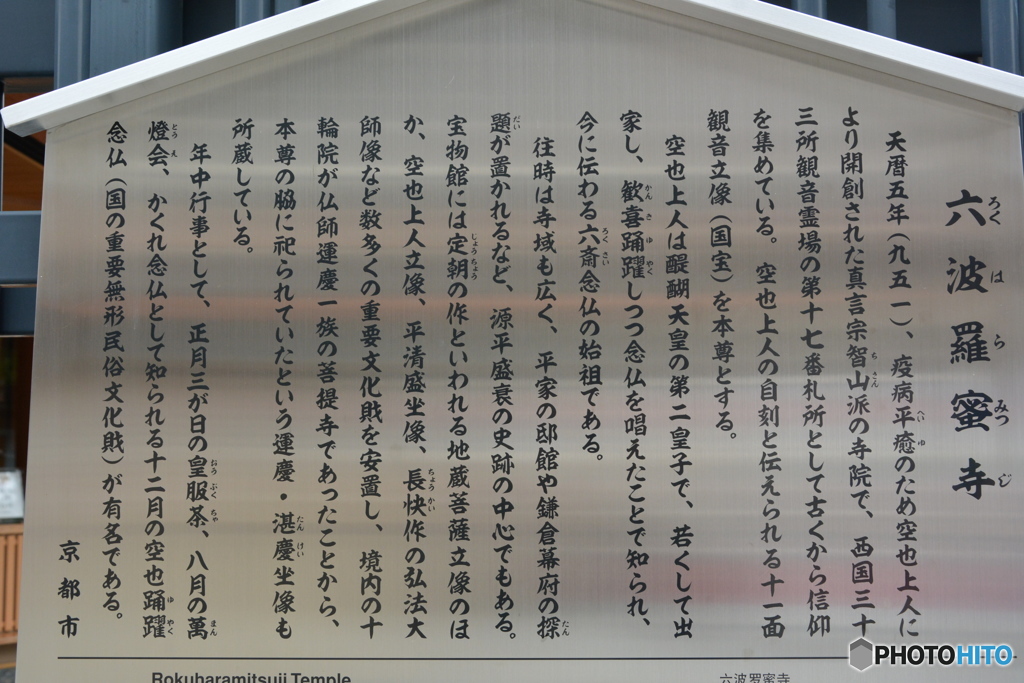 六波羅蜜寺
ろくはらみつじ
天暦五年（九五一）、疫病平癒のため空也上人に
へいゆ
より開創された真言宗智山派の寺院で、西国三十
ちさん
三所観音霊場の第十七番札所として古くから信仰
を集めている。空也上人の自刻と伝えられる十一面
観音立像（国宝）を本尊とする。
空也上人は醍醐天皇の第二皇子で、若くして出
家し、歓喜踊躍しつつ念仏を唱えたことで知られ、
かんきゆやく
今に伝わる六斎念仏の始祖である。
ろくさい
往時は寺域も広く、平家の邸館や鎌倉幕府の探
たん
題が置かれるなど、源平盛衰の史跡の中心でもある。
だい
宝物館には定朝の作といわれる地蔵菩薩立像のほ
じょうちょう
か、空也上人立像、平清盛坐像、長快作の弘法大
ちょうかい
師像など数多くの重要文化財を安置し、境内の十
輪院が仏師運慶一族の菩提寺であったことから、
本尊の脇に祀られていたという運慶・湛慶坐像も
たんけい
所蔵している。
年中行事として、正月三が日の皇服茶、八月の萬
おうぶくちゃ
まん
燈会、かくれ念仏として知られる十二月の空也踊躍
とうえ
ゆやく
念仏（国の重要無形民俗文化財）が有名である。
京都市
Rokuharamitsuji Temple
六波罗蜜寺
PHOTOHITO